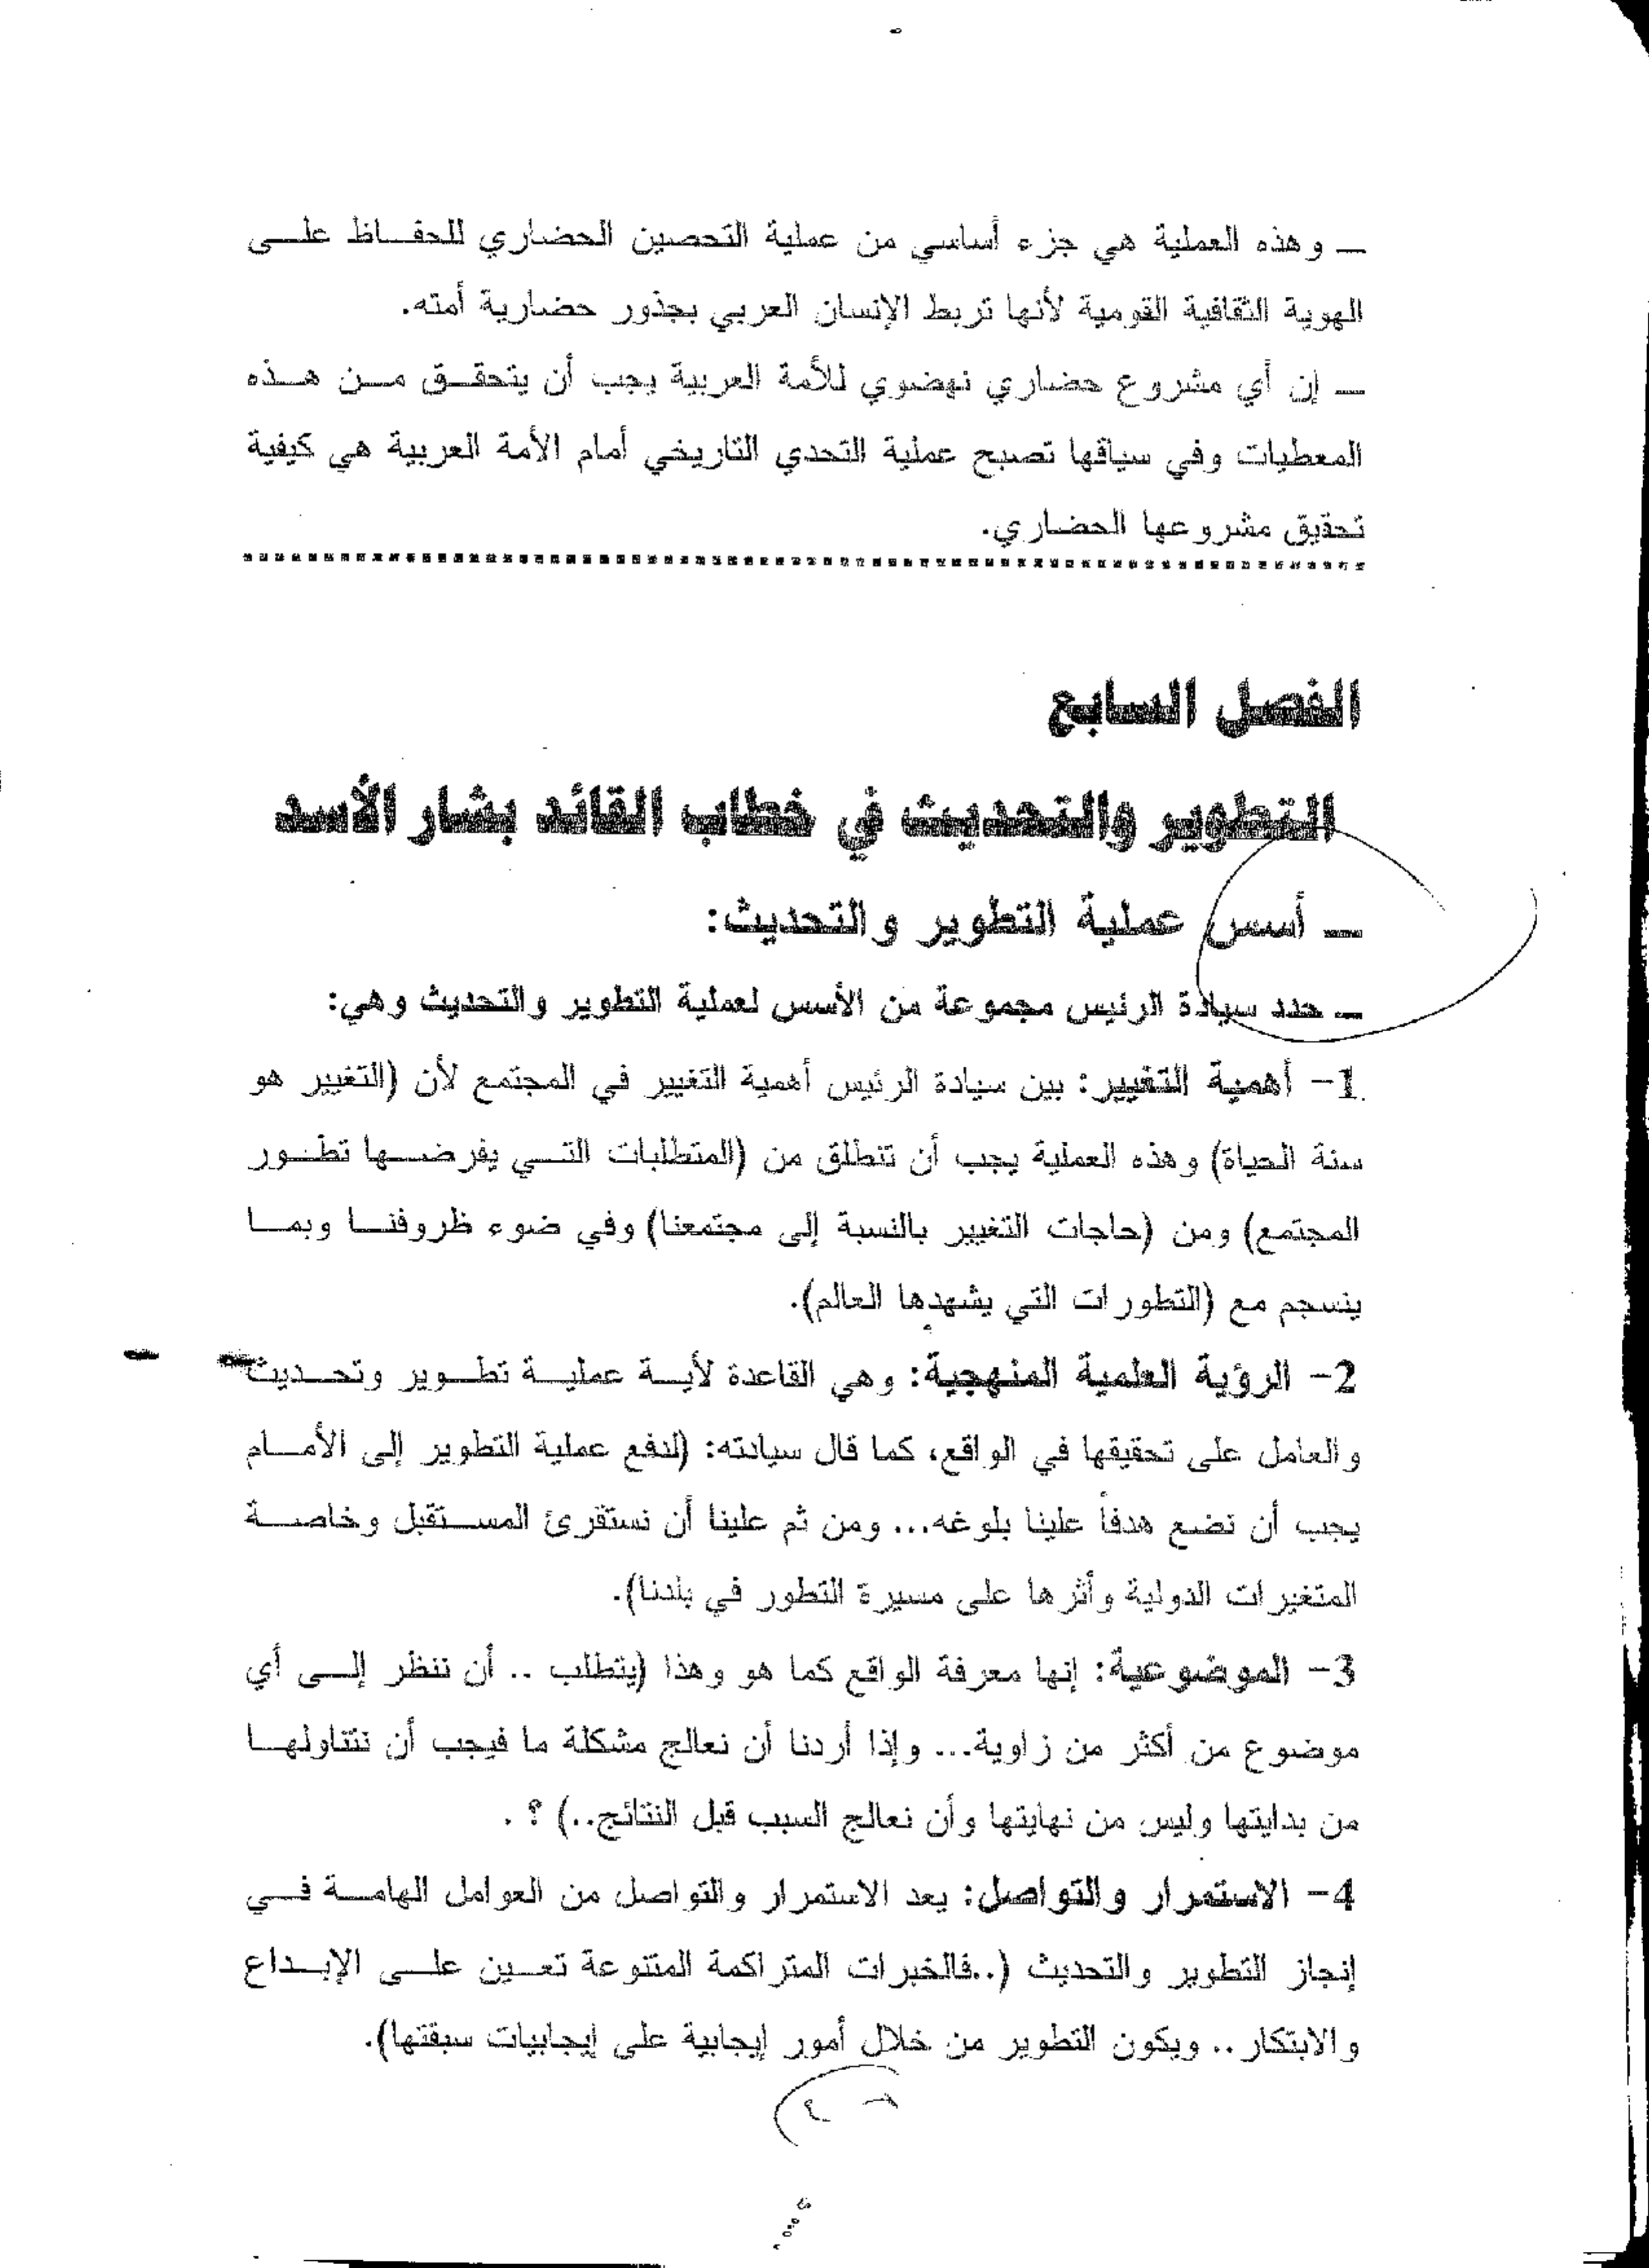 ــ وهذه العملية هي جزء أساسي من عملية التحصين الحضاري للحفاظ على
الهوية الثقافية القومية لأنها تربط الإنسان العربي بجذور حضارية أمته.
ــ إن أي مشروع حضاري نهضوي للأمة العربية يجب أن يتحقق من هذه
المعطيات وفي سياقها تصبح عملية التحدي التاريخي أمام الأمة العربية هي كيفية
تحقيق مشروعها الحضاري.
الفصل السابع
التطوير والتحديث في خطاب القائد بشار الأسد
ــ أسس عملية التطوير والتحديث:
ــ حدد سيادة الرئيس مجموعة من الأسس لعملية التطوير والتحديث وهي:
1- أهمية التغيير: بين سيادة الرئيس أهمية التغيير في المجتمع لأن (التغيير هو
سنة الحياة) وهذه العملية يجب أن تنطلق من (المتطلبات التي يفرضها تطور
المجتمع) ومن (حاجات التغيير بالنسبة إلى مجتمعنا) وفي ضوء ظروفنا وبما
ينسجم مع (التطورات التي يشهدها العالم).
2- الرؤية العلمية المنهجية: وهي القاعدة لأية عملية تطوير وتحديث
والعامل على تحقيقها في الواقع، كما قال سيادته: (لدفع عملية التطوير إلى الأمام
يجب أن نضع هدفاً علينا بلوغه... ومن ثم علينا أن نستقرئ المستقبل وخاصة
المتغيرات الدولية وأثرها على مسيرة التطور في بلدنا).
3- الموضوعية: إنها معرفة الواقع كما هو وهذا (يتطلب .. أن ننظر إلى أي
موضوع من أكثر من زاوية... وإذا أردنا أن نعالج مشكلة ما فيجب أن نتناولها
من بدايتها وليس من نهايتها وأن نعالج السبب قبل النتائج..) ؟ .
4- الاستمرار والتواصل: يعد الاستمرار والتواصل من العوامل الهامة في
إنجاز التطوير والتحديث (..فالخبرات المتراكمة المتنوعة تعين على الإبداع
والابتكار .. ويكون التطوير من خلال أمور إيجابية على إيجابيات سبقتها).